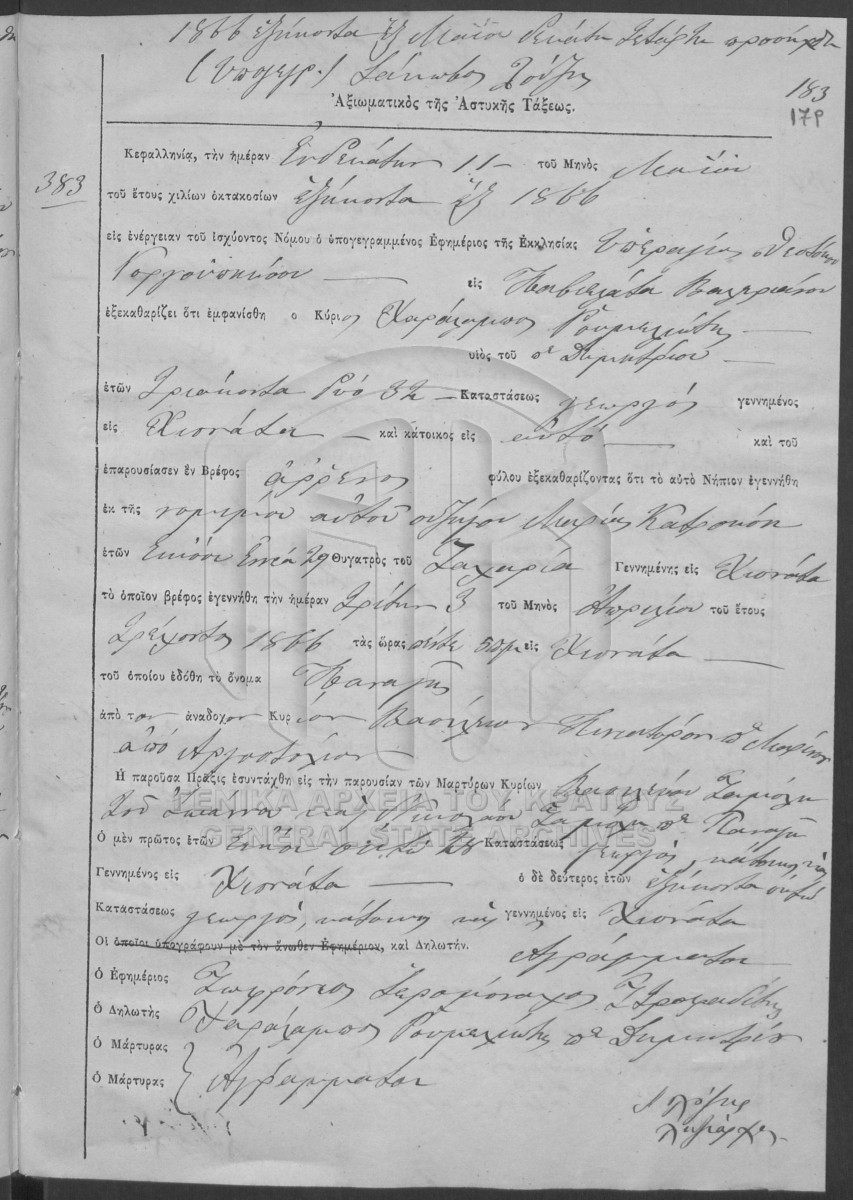 1866 ἑξήκοντα ἓξ Μαΐου δεκάτη τετάρτη
(Ὑπογρ.)
183
Ἀξιωματικὸς τῆς Ἀστυκῆς Τάξεως.
179
383
Κεφαλληνίᾳ, τὴν ἡμέραν Ἑνδεκάτην 11 - τοῦ Μηνὸς Μαΐου
τοῦ ἔτους χιλίων ὀκτακοσίων ἑξήκοντα ἓξ 1866
εἰς ἐνέργειαν τοῦ ἰσχύοντος Νόμου ὁ ὑπογεγραμμένος Ἐφημέριος τῆς Ἐκκλησίας Ὑπεραγίας Θεοτόκου
εἰς Βαλεριάνου
ἐξεκαθαρίζει ὅτι ἐμφανίσθη ὁ Κύριος Χαράλαμπος Ρουμελιώτης
υἱὸς τοῦ πε Δημητρίου
ἐτῶν Τριάκοντα δύο 32 - Καταστάσεως γεωργός γεννημένος
εἰς Χιονάτα - καὶ κάτοικος εἰς αὐτό - καὶ τοῦ
ἐπαρουσίασεν ἓν Βρέφος ἄρρενος φύλου ἐξεκαθαρίζοντας ὅτι τὸ αὐτὸ Νήπιον ἐγεννήθη
ἐκ τῆς νομίμου αὐτοῦ συζύγου Μαρίας
ἐτῶν Εἴκοσι Ἐννέα 29 Θυγατρὸς τοῦ Ζαχαρία Γεννημένης εἰς Χιονάτα
τὸ ὁποῖον βρέφος ἐγεννήθη τὴν ἡμέραν Τρίτην 3 τοῦ Μηνὸς Ἀπριλίου τοῦ ἔτους
Τρέχοντος 1866 τὰς ὥρας πέντε 5 πμ εἰς Χιονάτα
τοῦ ὁποίου ἐδόθη τὸ ὄνομα Παναγῆς
ἀπὸ τον ἀνάδοχον Κύριον Βασίλειον πε Μαρίνου
ἀπὸ Ἀργοστόλιον
Ἡ παροῦσα Πρᾶξις ἐσυντάχθη εἰς τὴν παρουσίαν τῶν Μαρτύρων Κυρίων Βασιλείου
τοῦ Ἰωάννου καὶ Νικολάου πε Παναγῆ
Ὁ μὲν πρῶτος ἐτῶν εἴκοσι ὀκτώ 28 Καταστάσεως γεωργός, κάτοικος καὶ
Γεννημένος εἰς Χιονάτα ὁ δὲ δεύτερος ἐτῶν ἑξήκοντα ὀκτώ
Καταστάσεως γεωργός, κάτοικος καὶ γεννημένος εἰς Χιονάτα
Οἱ ὁποῖοι ὑπογράφουν μὲ τὸν ἄνωθεν Ἐφημέριον, καὶ Δηλωτήν. Ἀγράμματοι
Ὁ Ἐφημέριος Σωφρόνιος Ἱερομόναχος
Ὁ Δηλωτὴς Χαράλαμπος Ρουμελιώτης πε Δημητρίου
Ὁ Μάρτυρας
Ὁ Μάρτυρας } Ἀγράμματοι
Ὁ
ληξίαρχος
ΓΕΝΙΚΑ ΑΡΧΕΙΑ ΤΟΥ ΚΡΑΤΟΥΣ
GENERAL STATE ARCHIVES